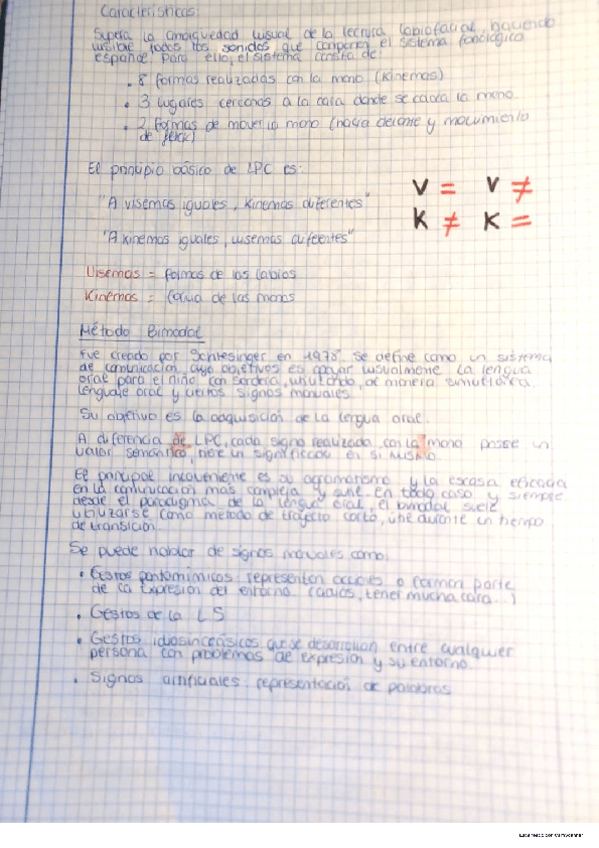 Características:
Supera la ambigüedad visual de la lectura labiofacial, haciendo
visible todos los sonidos que componen el sistema fonológico
español. Para ello, el sistema consta de:
• 8 formas realizadas con la mano (kinemas)
• 3 lugares cercanos a la cara donde se coloca la mano.
• 2 formas de mover la mano (hacia delante y movimiento
de flick)
El principio básico de LPC es:
"A visemas iguales, kinemas diferentes"
"A kinemas iguales, visemas diferentes"
V = V ≠
K ≠ K =
Visemas = formas de los labios
Kinemas = forma de las manos
Método Bimodal
Fue creado por Schlesinger en 1978. Se define como un sistema
de comunicación cuyo objetivos es apoyar visualmente la lengua
oral para el niño con sordera, utilizando, de manera simultánea
lenguaje oral y ciertos signos manuales.
Su objetivo es la adquisición de la lengua oral.
A diferencia de LPC, cada signo realizado con la mano posee un
valor semántico, tiene un significado en sí mismo.
El principal inconveniente es su agramatismo y la escasa eficacia
en la comunicación más compleja y sutil. En todo caso y siempre
desde el paradigma de la lengua oral, el bimodal suele
utilizarse como método de trayecto corto, útil durante un tiempo
de transición.
Se puede hablar de signos manuales como:
• Gestos pantomímicos: representan acciones o forman parte
de la expresión del entorno. (adiós, tener mucha cara...)
• Gestos de la LS
• Gestos idiosincrásicos que se desarrollan entre cualquier
persona con problemas de expresión y su entorno.
• Signos artificiales: representación de palabras